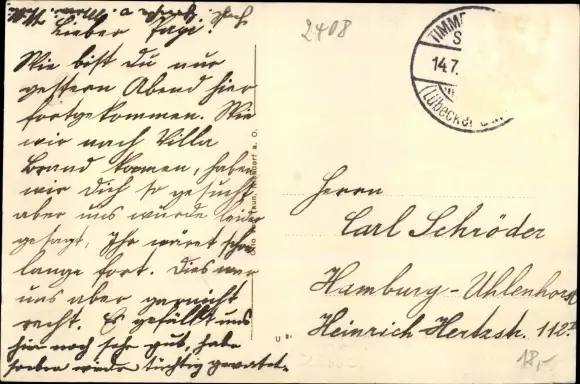 Lieber Papi!
Wie bist Du nur
gestern Abend hier
fortgekommen. Wie
wir nach Villa
Brand kamen, haben
wir Dich so gesucht
aber uns wurde leider
gesagt, Ihr wäret schon
lange fort. Dies war
uns aber garnicht
recht. Es gefällt uns
hier noch sehr gut, habe
soeben wieder tüchtig gewatet.
2408
TIMME
14.7.
(Lübecker
Otto
a. O.
Herrn
Carl Schröder
Hamburg-Uhlenhorst
Heinrich-Hertzstr. 112
18,-